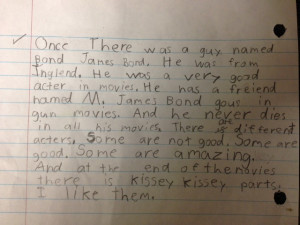 Once There was a guy named
Bond James Bond. He was from
Inglend. He was a very good
acter in movies. He has a freiend
named M. James Bond gous in
gun movies. And he never dies
in all his movies. There is are different
acters. Some are not good. Some are
good. Some are amazing.
And at the end of the movies
there is kissey kissey parts.
I like them.